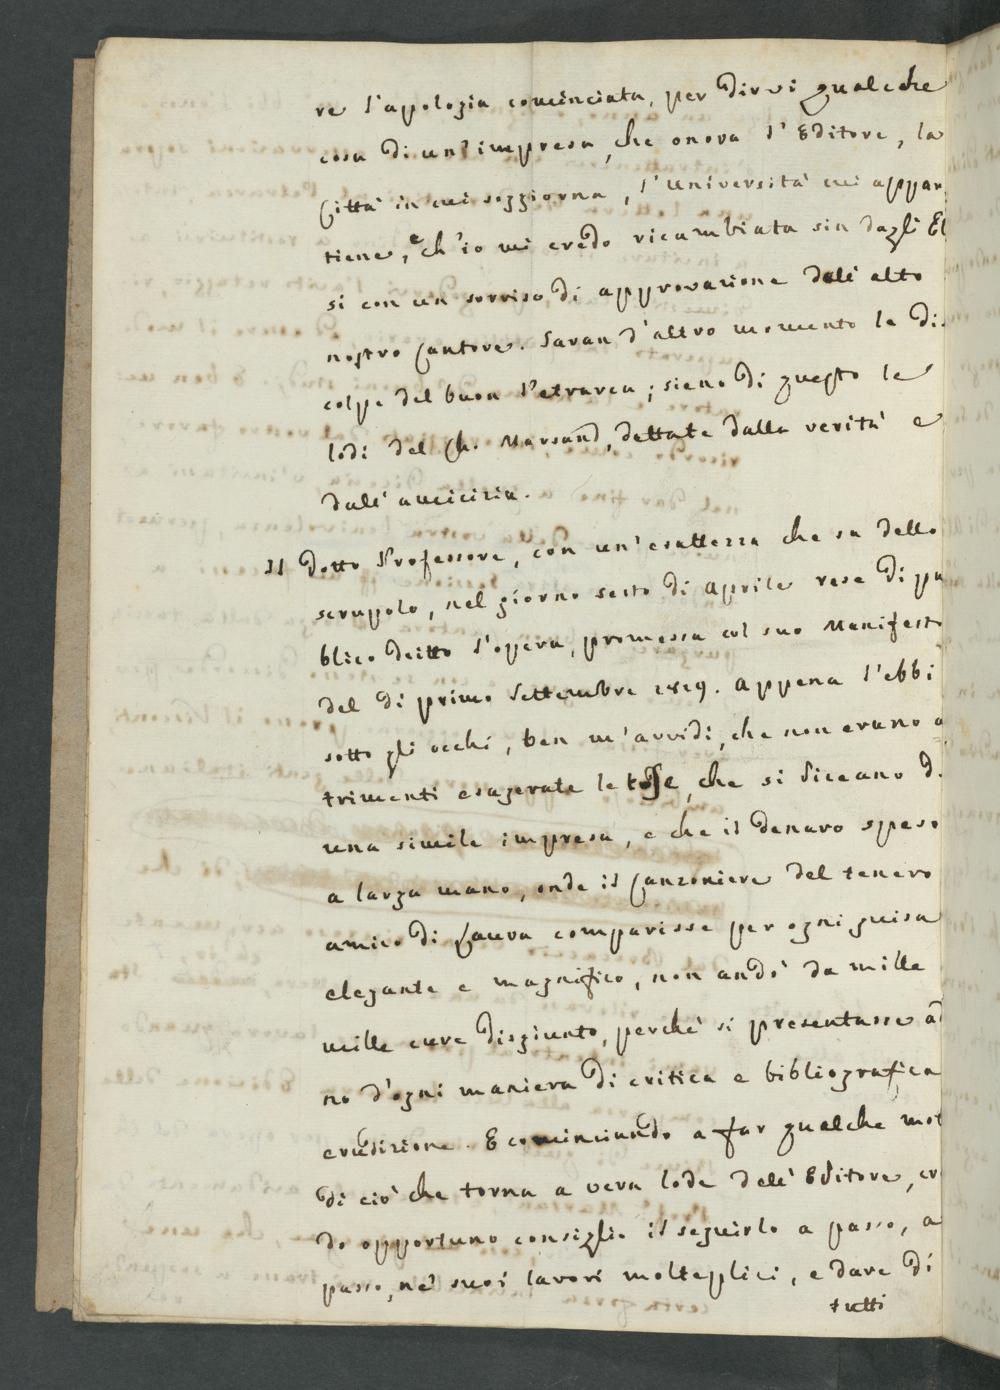 re l'apologia cominciata, per dirvi qualche
cosa di un'impresa, che onora l'Editore, la
Città in cui soggiorna, l'università cui appar
tiene, e ch'io mi credo ricambiata sin dagli El
si con un sorriso di approvazione dell'alto
nostro Cantore. Saran d'altro momento le di
colpe del buon Petrarca; sieno di questo le
lodi del Ch. Marsand, dettate dalla verità e
dall'amicizia.
Il dotto Professore, con un'esattezza che sa dello
scrupolo, nel giorno sesto di Aprile rese di pu
blico deitto l'opera, promessa col suo Manifesto
del dì primo Settembre 1819. Appena l'ebbi
sotto gli occhi, ben m'avvidi, che non erano a
trimenti esagerate le che si diceano d
una simile impresa, e che il denaro speso
a larga mano, onde il Canzoniere del tenero
amico di Laura comparisse per ogni guisa
elegante e magnifico, non andò da mille
mille cure disgiunto, perchè si presentasse ad
no d'ogni maniera di critica e bibliografica
erudizione. E cominciando a far qualche mot
di ciò che torna a vera lode dell'Editore, cr
do opportuno consiglio il seguirlo a passo, a
passo, ne' suoi lavori molteplici, e dare di
tutti